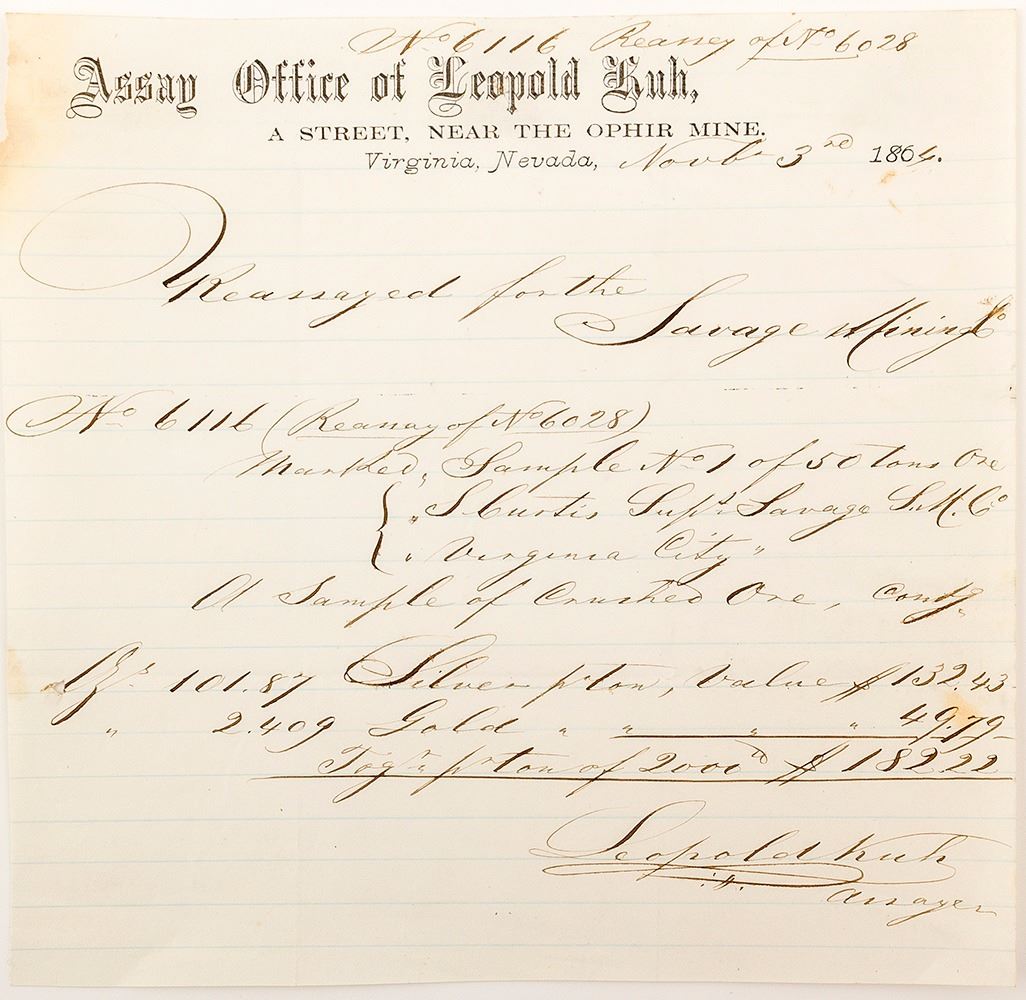 No 6116 Reassay of No 6028
Assay Office of Leopold Kuh,
A STREET, NEAR THE OPHIR MINE.
Virginia, Nevada, Novbr 3rd 1864.
Reassayed for the
Savage Mining Co
No 6116 (Reassay of No 6028)
Marked, "Sample No 1 of 50 tons Ore
" S Curtis Supt Savage S.M. Co
" Virginia City"
A Sample of Crushed Ore, contg
Ozs 101.87 Silver pr ton, Value $132.43
" 2.409 Gold " " " " 49.79
Togr pr ton of 2000 lb $182.22
Leopold Kuh
Assayer